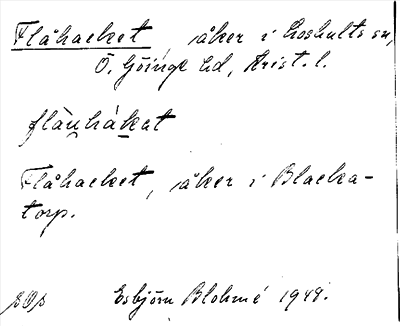 Flåhacket, åker i Loshults sn,
Ö. Göinge hd, Krist. l.
flàu̱hák̲at
Flåhacket, åker i Blacka-
torp.
Esbjörn Blohmé 1949.